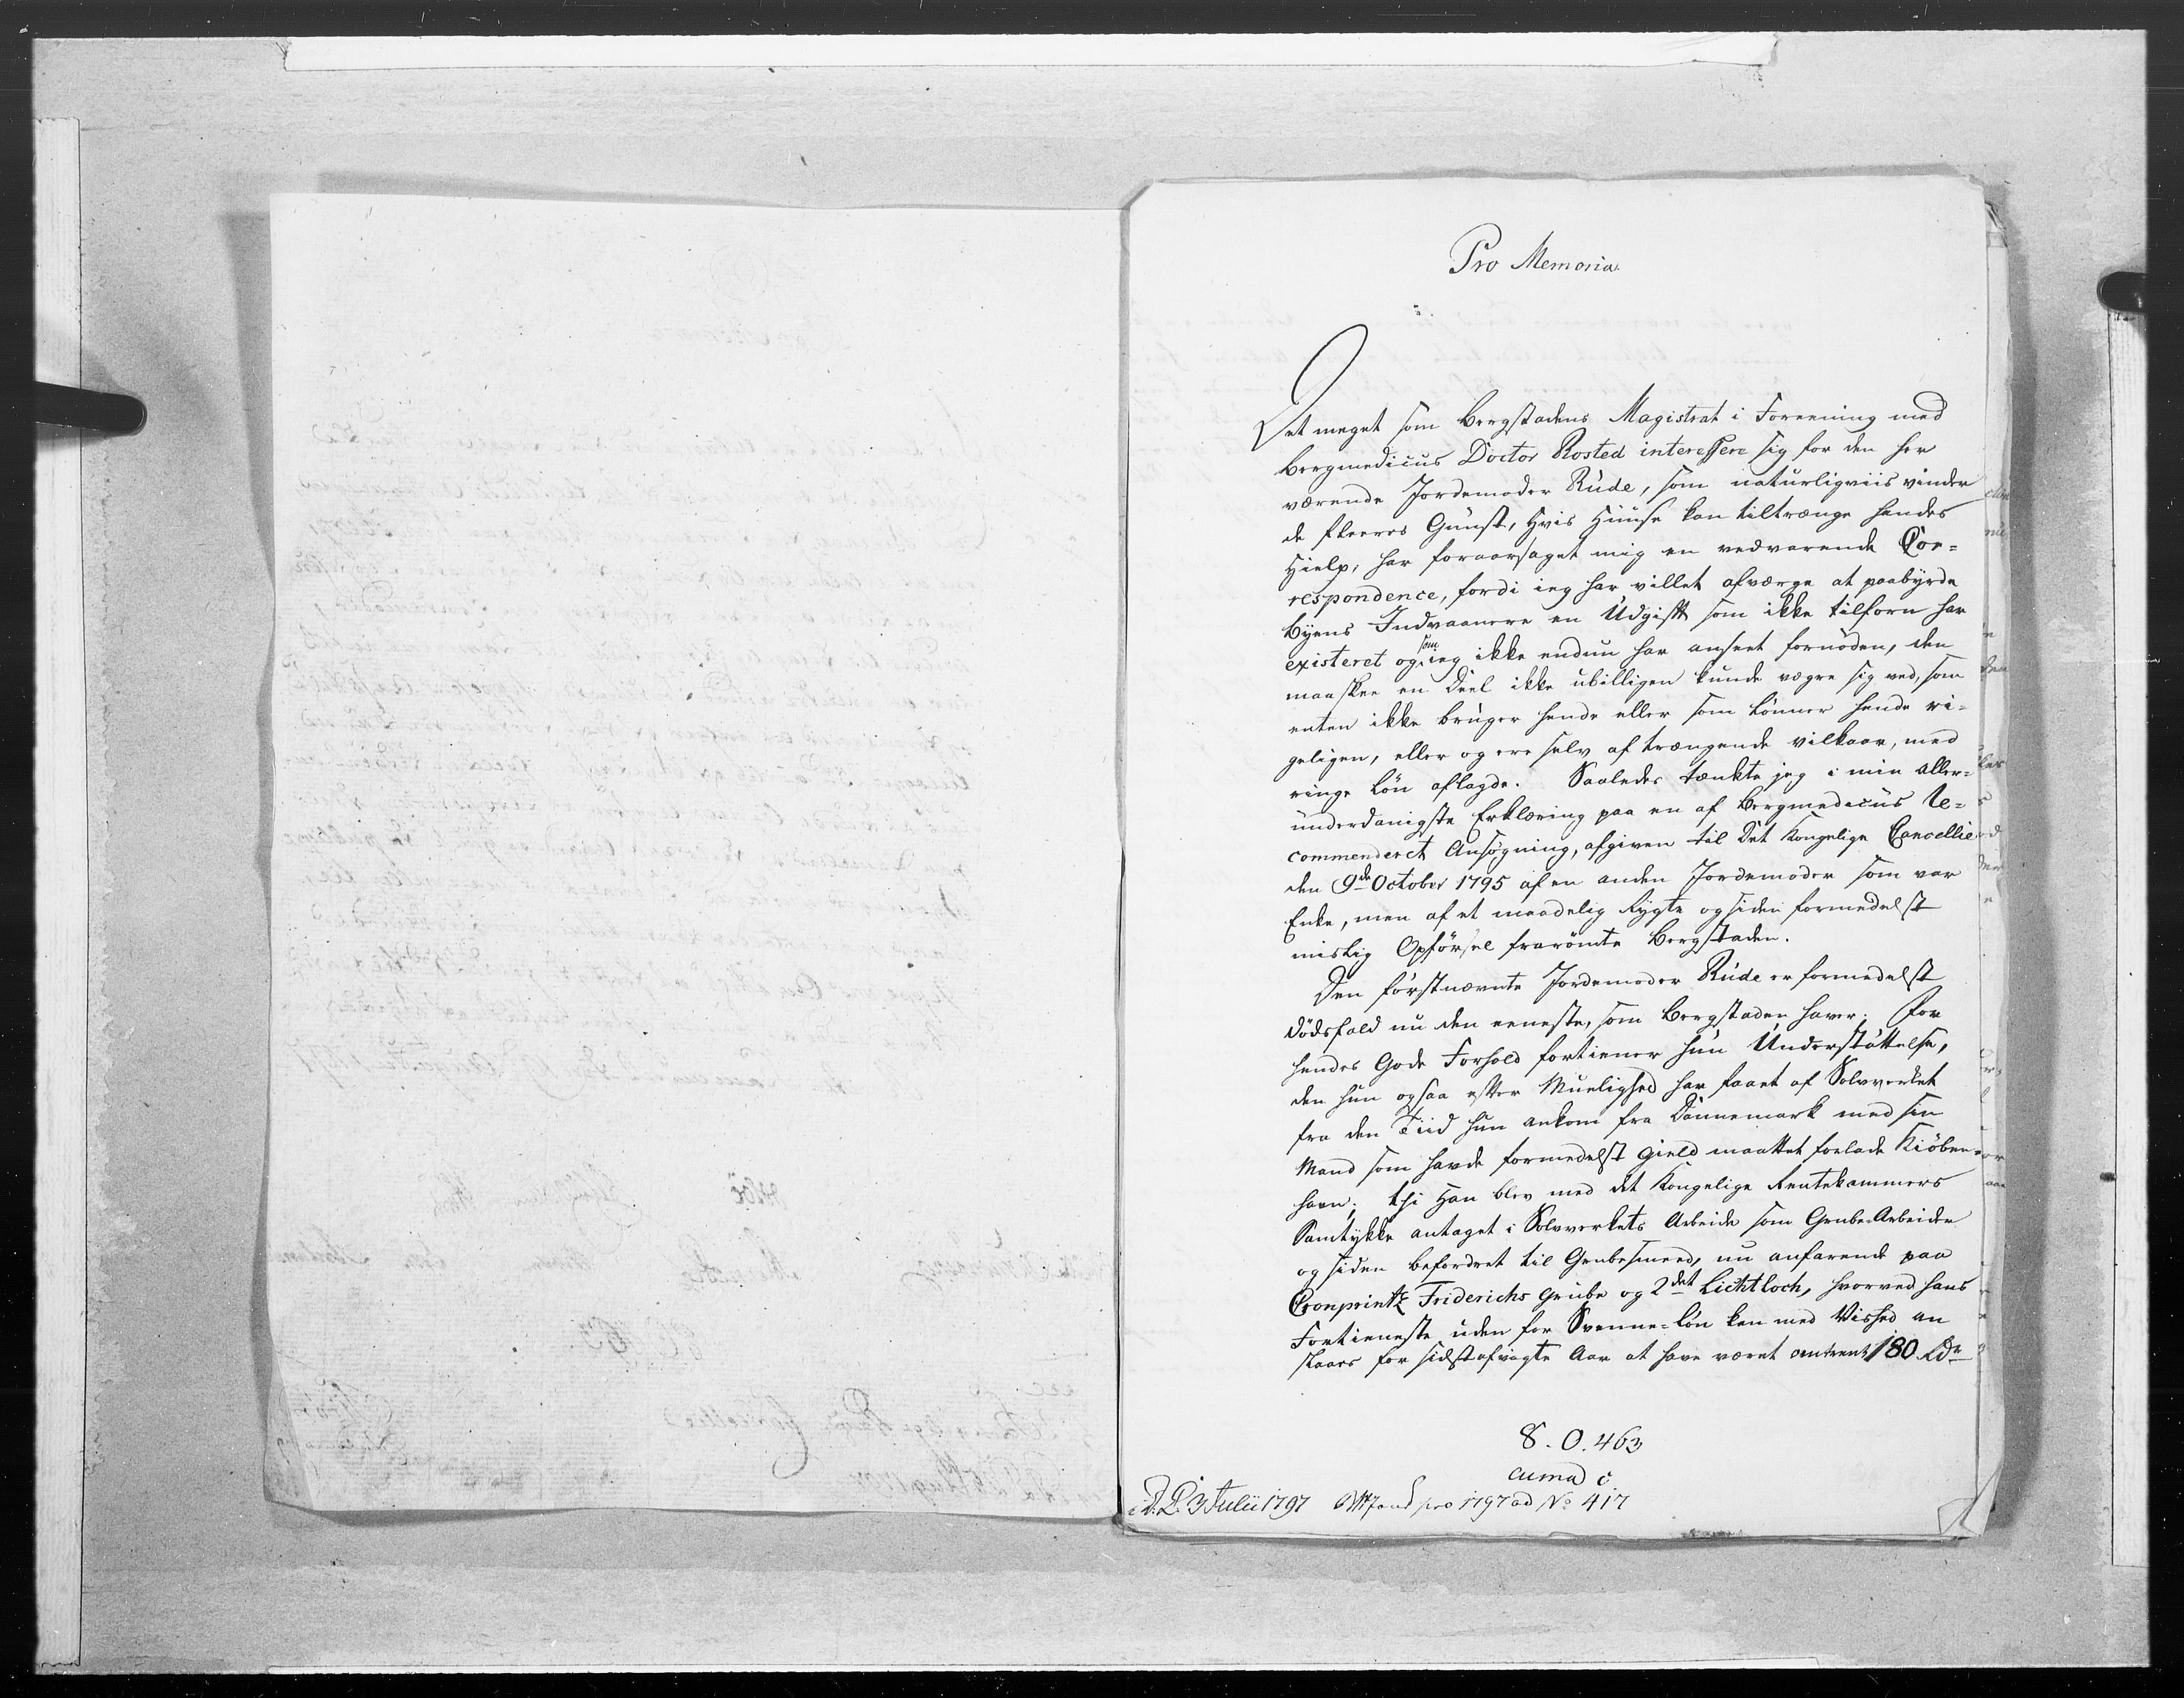 Pro Memoria.
Det meget som Bergstadens Magistrat i Foreening med
Bergmedicus Doctor Rosted interessere sig for den her
værende Jordemoder Rude, som naturligviis vinder
de fleeres Gunst, hvis Huuse kan tiltrænge hendes
Hielp, har foraarsaget mig en vedvarende Cor=
respondence, fordi ieg har villet afværge at paabyrde
Byens Indvaanere en Udgift som ikke tilforn har
existeret og som ieg ikke endnu har anseet fornøden, den
maaskee en Deel ikke ubilligen kunde vægre sig ved, som
enten ikke bruger hende eller som lønner hende ri=
geligen, eller og ere selv af trængende vilkaar, med
ringe Løn aflagde. Saaledes tænkte jeg i min aller=
underdanigste Erklæring paa en af Bergmedicus re=
commenderet Ansøgning, afgiven til Det Kongelige Cancellie
den 9de October 1795 af en anden Jordemoder som var
Enke, men af et maadelig Rygte og siden formedelst
mislig Opførsel frarømte Bergstaden.
Den førstnævnte Jordemoder Rude er formedelst
Dødsfald nu den eeneste, som Bergstaden haver. For
hendes Gode Forhold fortiener hun Understøttelse,
den hun ogsaa efter Muelighed har faaet af Sølvverket
fra den Tiid hun ankom fra Dannemark med sin
Mand som havde formedelst Gield maattet forlade Kiøben=
havn; thi Han blev med det Kongelige Rentekammers
Samtykke antaget i Sølvverkets Arbeide som Grube-Arbeider
og siden befordret til Grubesmed, nu anfarende paa
Cronprintz Friderichs Grube og 2det Lichtloch, hvorved hans
Fortieneste uden for Svenne=Løn kan med Vished an
slaaes for sidstafvigte Aar at have været omtrent 180 Rdr
8. O. 463
cum a c
i D. L. 3 Julii 1797 pro 1797 ad No 417